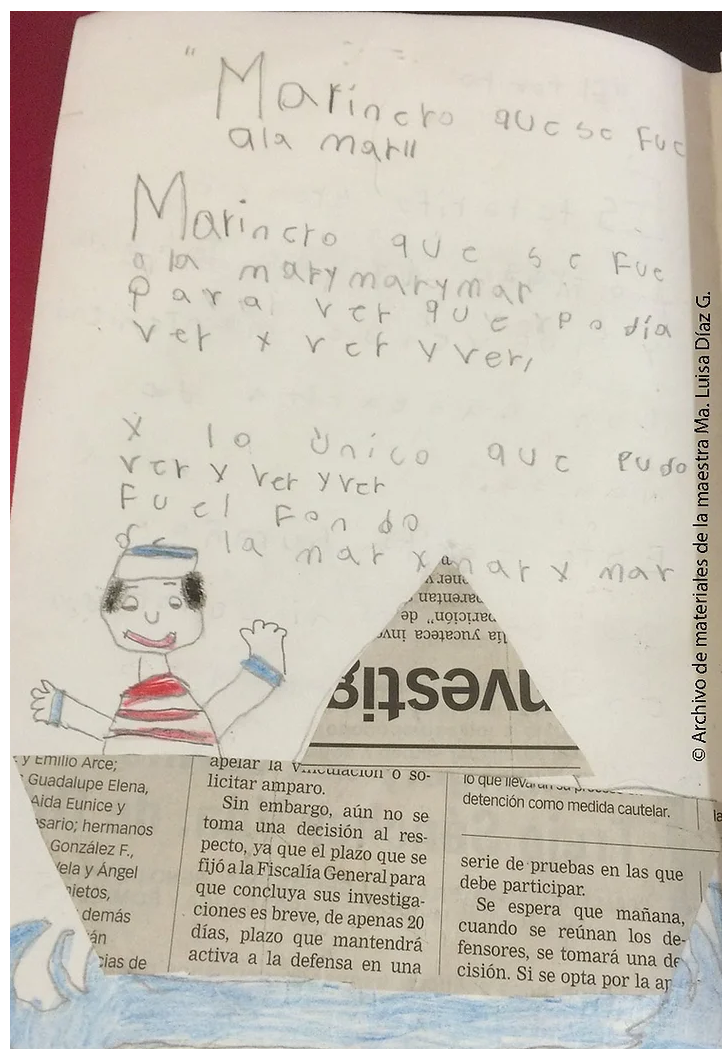 "Marinero que se fue
a la mar"
Marinero que se fue
a la mar y mar y mar
Para ver que podía
ver y ver y ver,
Y lo único que pudo
ver y ver y ver
Fu el Fondo
de la mar y mar y mar
© Archivo de materiales de la maestra Ma. Luisa Díaz G.
nvestig
ía yucateca inv
parición", de
arentan
ener v
y Emilio Arce;
Guadalupe Elena,
Aida Eunice y
sario; hermanos
González F.,
Vela y Ángel
nietos,
demás
án
cias de
apelar la vinculación o so-
licitar amparo.
Sin embargo, aún no se
toma una decisión al res-
pecto, ya que el plazo que se
fijó a la Fiscalía General para
que concluya sus investiga-
ciones es breve, de apenas 20
días, plazo que mantendrá
activa a la defensa en una
lo que llevarán su proceso
detención como medida cautelar.
serie de pruebas en las que
debe participar.
Se espera que mañana,
cuando se reúnan los de-
fensores, se tomará una de
cisión. Si se opta por la ap
la